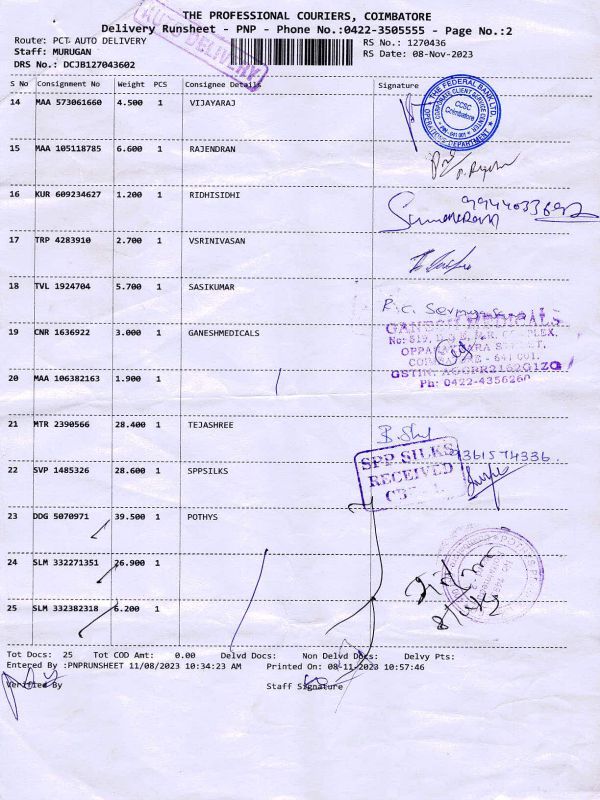 THE PROFESSIONAL COURIERS, COIMBATORE
Delivery Runsheet - PNP - Phone No.:0422-3505555 - Page No.:2
AUTO DELIVERY
Route: PCT AUTO DELIVERY
RS No.: 1270436
Staff: MURUGAN
RS Date: 08-Nov-2023
DRS No.: DCJB127043602
S No Consignment No Weight PCS Consignee Details Signature
14 MAA 573061660 4.500 1 VIJAYARAJ
THE FEDERAL BANK LTD.
CORPORATE CLIENT SERVICE CENTRE
CCSC
Coimbatore
OPERATIONS DEPARTMENT
15 MAA 105118785 6.600 1 RAJENDRAN
16 KUR 609234627 1.200 1 RIDHISIDHI
17 TRP 4283910 2.700 1 VSRINIVASAN
18 TVL 1924704 5.700 1 SASIKUMAR
R.C.
19 CNR 1636922 3.000 1 GANESHMEDICALS
GANESH MEDICALS
No: 519,
641 001.
Ph: 0422-4356260
20 MAA 106382163 1.900 1
21 MTR 2390566 28.400 1 TEJASHREE
22 SVP 1485326 28.600 1 SPPSILKS
SPP SILKS
RECEIVED
23 DDG 5070971 39.500 1 POTHYS
24 SLM 332271351 26.900 1
25 SLM 332382318 6.200 1
Tot Docs: 25 Tot COD Amt: 0.00 Delvd Docs: Non Delvd Docs: Delvy Pts:
Entered By :PNPRUNSHEET 11/08/2023 10:34:23 AM Printed On: 08-11-2023 10:57:46
Verified By Staff Signature